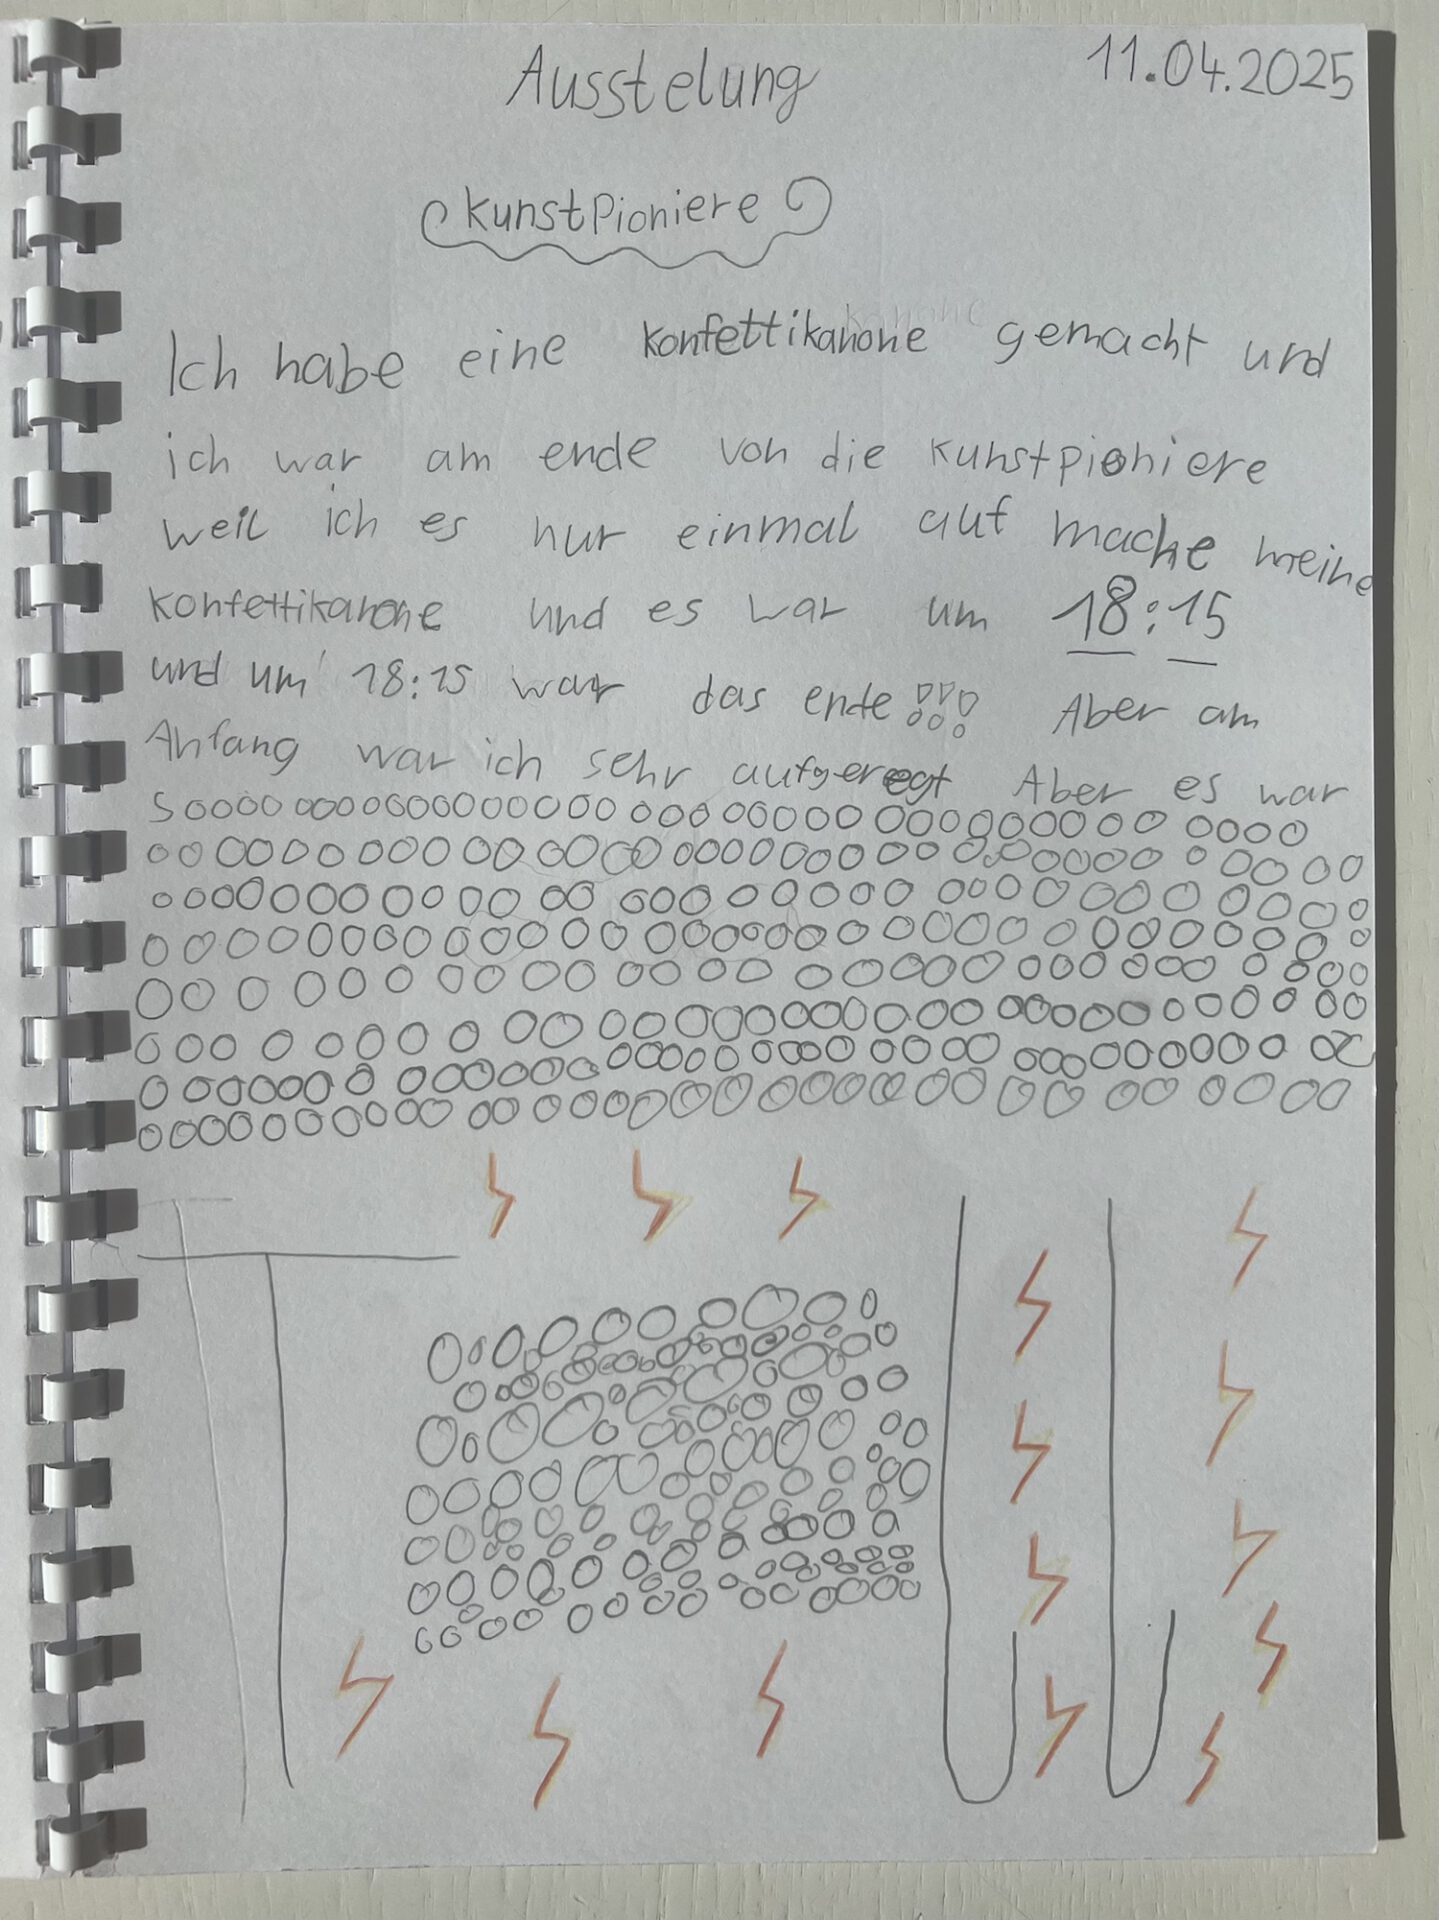 Ausstelung 11.04.2025
Kunstpioniere
Ich habe eine Konfettikanone gemacht und
ich war am ende von die Kunstpioniere
weil ich es nur einmal auf mache meine
Konfettikanone und es war um 18:15
und um 18:15 war das ende!!! Aber am
Anfang war ich sehr aufgeregt Aber es war
Soooo oooooooooooo ooo oooooooooooooo oooo
oooooooooooooooooooooooooooooooooooo
oooooooooooooooooooooooooooooooo
ooooooooooooooooooooooooooooooooooo
oooooooooooooooooooooooooooooooo
ooooooooooooooooooooooooooooooooo
oooooooooooooooooooooooooooooooooooooo
oooooooooooooooooooooooooooooooooooo
Toll